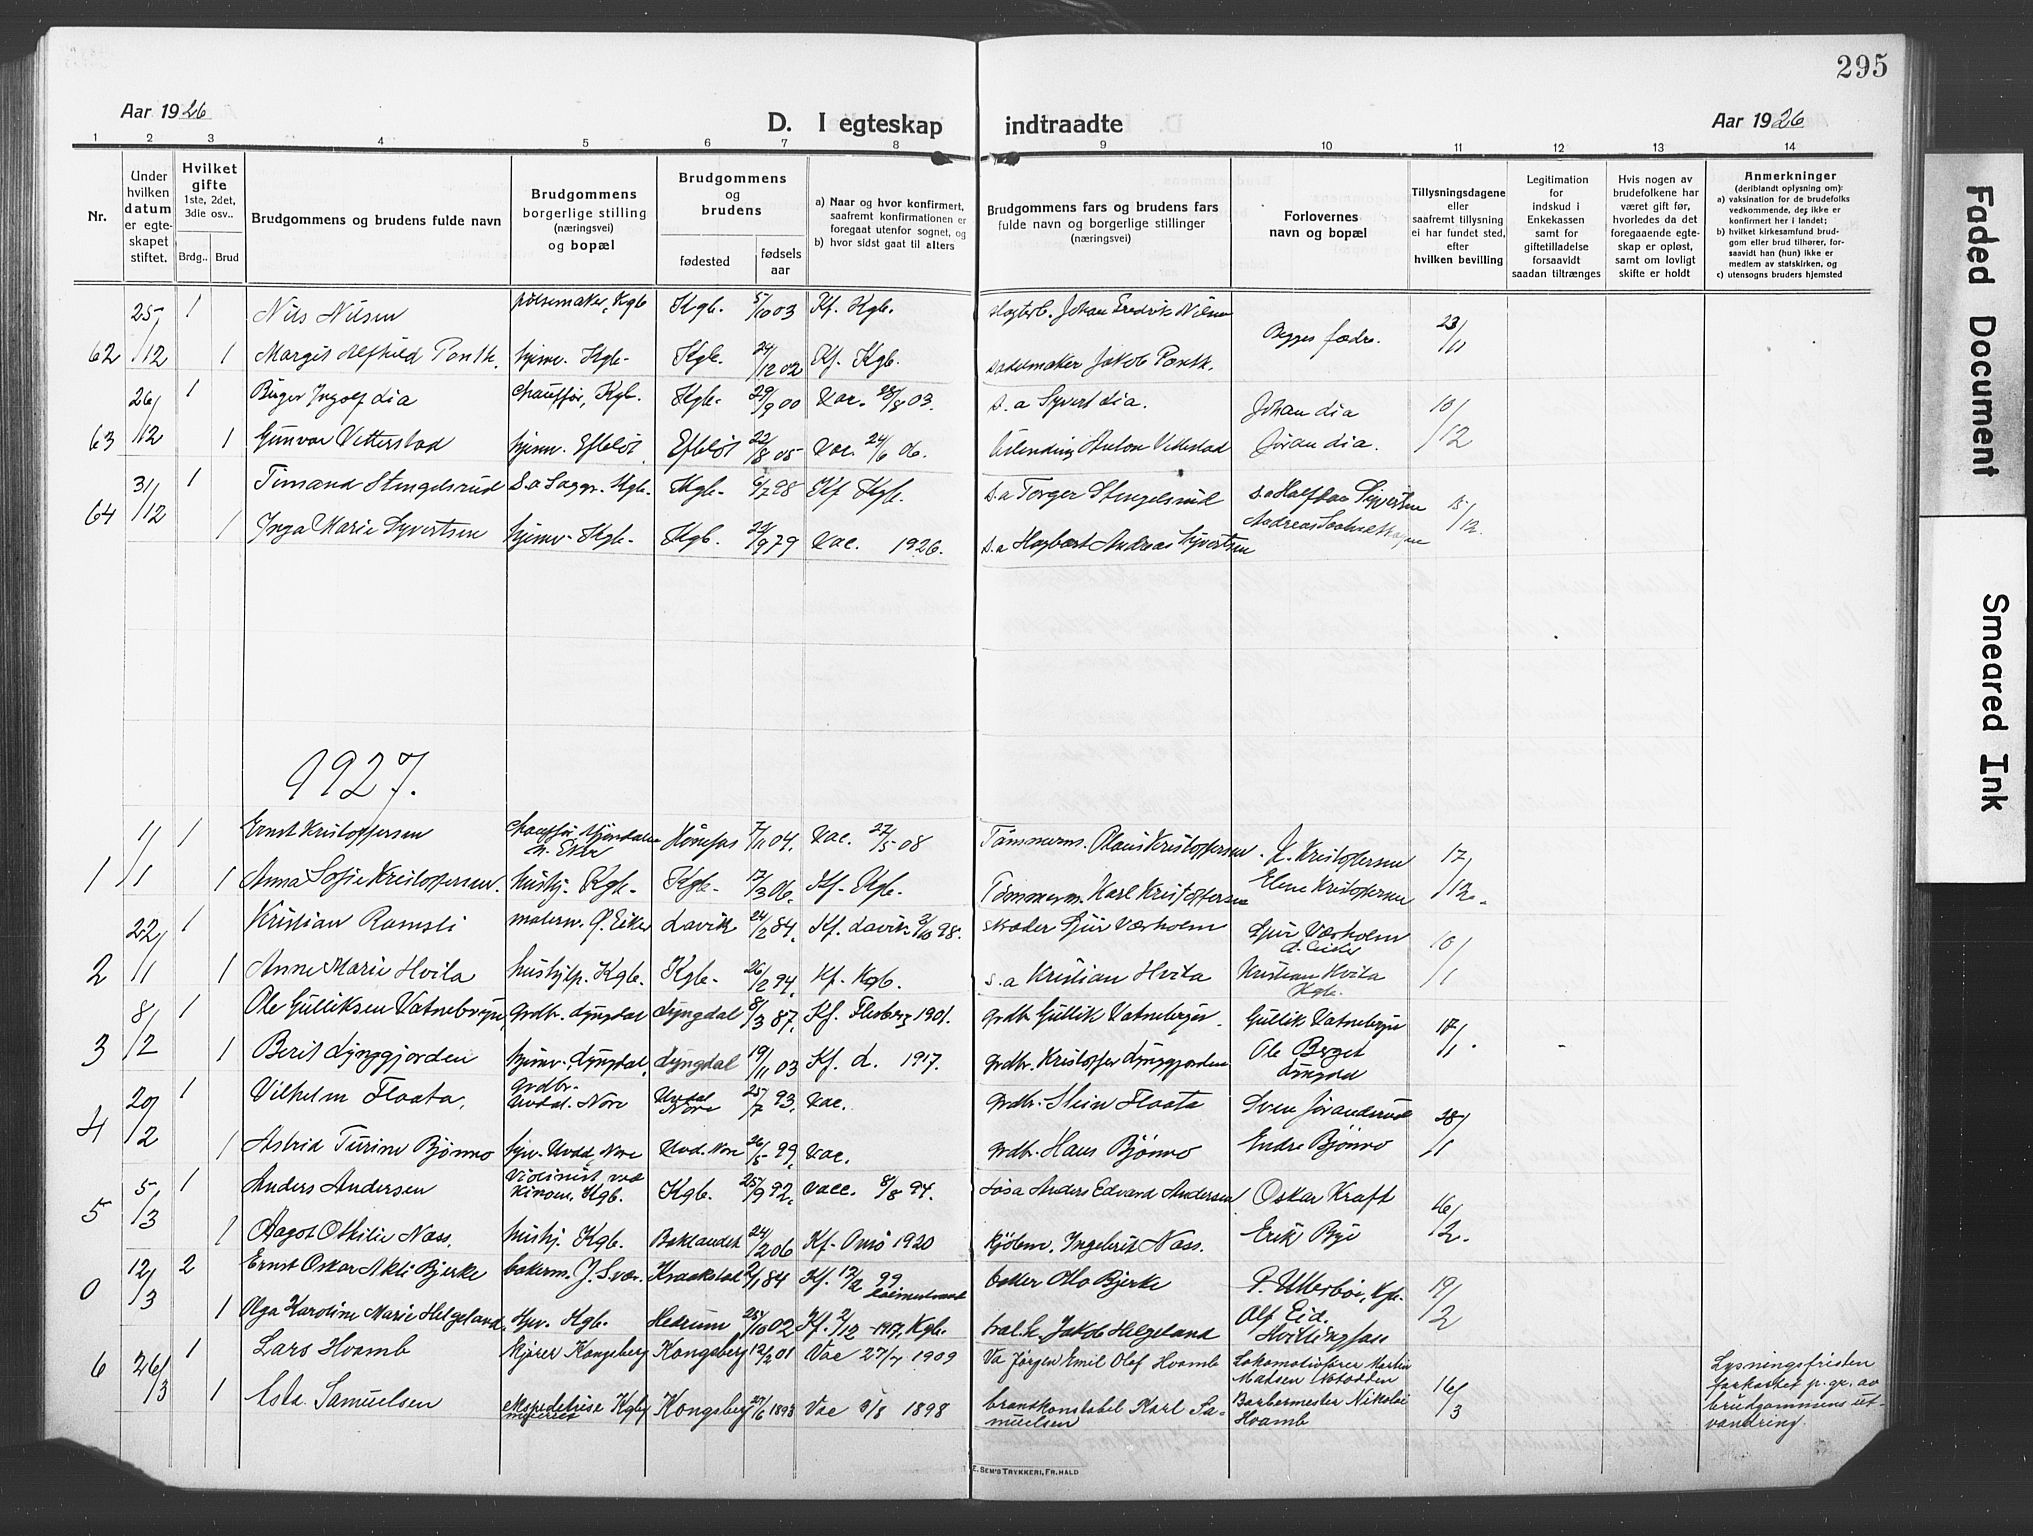 295
Aar 1926
D. I egteskap indtraadte
Aar 1926
1 2 3 4 5 6 7 8 9 10 11 12 13 14
Nr.
Under hvilken datum er egteskapet stiftet.
Hvilket gifte
1ste, 2det, 3die osv..
Brdg.. Brud
Brudgommens og brudens fulde navn
Brudgommens borgerlige stilling (næringsvei) og bopæl
Brudgommens og brudens
fødested
fødselsaar
a) Naar og hvor konfirmert, saafremt konfirmationen er foregaat utenfor sognet, og
b) hvor sidst gaat til alters
Brudgommens fars og brudens fars fulde navn og borgerlige stillinger (næringsvei)
Forlovernes navn og bopæl
Tillysningsdagene eller saafremt tillysning ei har fundet sted, efter hvilken bevilling
Legitimation for indskud i Enkekassen samt for giftetilladelse forsaavidt saadan tiltrænges
Hvis nogen av brudefolkene har været gift før, hvorledes da det foregaaende egteskap er opløst, samt om lovligt skifte er holdt
Anmerkninger
(deriblandt oplysning om):
a) vaksination for de brudefolks vedkommende, der ikke er konfirmert her i landet;
b) hvilket kirkesamfund brudgom eller brud tilhører, forsaavidt han (hun) ikke er medlem av statskirken, og
c) utensogns bruders hjemsted
25/12 1 Nils Nilsen pølsemaker, Kgb Kgb. 5/10 03 Kf. Kgb. Johan Fredrik Nilsen Begges fædre. 23/11
62 1 Margit Alfhild hjemv. Kgb. Kgb. 24/12 02 Kf. Kgb. Jakob
26/12 1 Birger Ingolf Lia Chauffør, Kgb. Kgb. 29/9 00 Vac. 28/8 03. S. a Syvert Lia. Johan Lia 10/12
63 1 Gunvor Vetterstad hjemv. Efteløt Efteløt 22/8 05 Vac. 24/6 06. Anton Vettestad Lia.
31/12 1 Timand Stengelsrud S.a Sagg. Kgb. Kgb. 6/7 98 Kf Kgb. S.a Torger Stengelsrud S.a Halfdan Syvertsen
64 1 Inga Marie Syvertsen hjemv. Kgb. Kgb. 22/9 79 Vac. 1926. S.a Hagbart Andreas Syvertsen Andreas
1927.
1/1 1 Ernst Kristoffersen Chauffør Mjøndalen N. Eker Hønefos 7/11 04. Vac. 27/5 08 Tømmerm. Olaus Kristoffersen K. Kristoffersen 17/12.
1 1 Anna Sofie Kristoffersen. hushj. Kgb. Kgb. 12/3 06. Kf. Kgb. Tømmerm. Karl Kristoffersen Elene Kristoffersen
22/1 1 Kristian Ramsli malerm. Ø. Eiker Lavik 24/2 84. Kf. Lavik 2/10 98. Værholm Værholm 10/1
2 1 Anne Marie Hvila hushjlp. Kgb. Kgb. 26/2 94. Kf. Kgb. S.a Kristian Hvila Kristian Hvila Kgb.
8/2 1 Ole Gulliksen Vatnebryn grdbr. Lyngdal Lyngdal 8/3 87. Kf. Flesberg 1901. grdbr Gullik Vatnebryn. Gullik Vatnebryn 17/1.
3 1 Berit Lynggjorden hjemv. Lyngdal, Lyngdal 19/11 03 Kf. L. 1917. grdbr. Kristoffer Lynggjorden Ole Berget Lyngdal
20/2 1 Vilhelm Flaata. grdbr. Uvdal. Nore Uvdal Nore 25/7 93. Vac. grdbr. Stein Flaata Sven Jøranderud 28/1
4 1 Astrid Turine Bjønno hjv. Uvdal Nore Uvd. Nore 26/5 99. Vac. grdbr. Hans Bjønno Endre Bjønno
5/3 1 Anders Andersen Violinist ved Kinoen, Kgb. Kgb. 25/9 92. Vacc. 8/8 94. Anders Edvard Andersen Oskar Kraft 16/2.
5 1 Aagot Othilie Nass. hushj. Kgb. Baklandet 24/2 06 Kf. 1920 kjøbm. Ingebrit Nass. Erik Bye
12/3 2 Ernst Oskar Akli Bjerke bakerm. J. Svær. Kraakstad 2/1 84 Kf. 17/2 99 Holmestrand baker Olo Bjerke P. Ullerboi, Kgb. 19/2
0 1 Olga Karoline Marie Helgeland, hjv. Kgb. Hedrum 25/10 02 Kf. 2/12 1917, Kgb. Jakob Helgeland Alf Eid. Hvittingfoss
6 26/3 1 Lars Hvamb kjører Kongsberg Kongsberg 12/2 01 Vac 27/7 1909 Va Jørgen Emil Olaf Hvamb Lokomotivfører Martin Madsen Notodden 16/3 Lysningsfristen forkortet p. gr. av brudgommens utvandring.
1 Asta Samuelsen ekspeditrise Kgbg meieriet Kongsberg 27/6 1898 Vac 8/8 1898 brandkonstabel Karl Samuelsen Barbermester Nikolai Hvamb
E. SEM'S TRYKKERI, FR.HALD
Faded Document
Smeared Ink